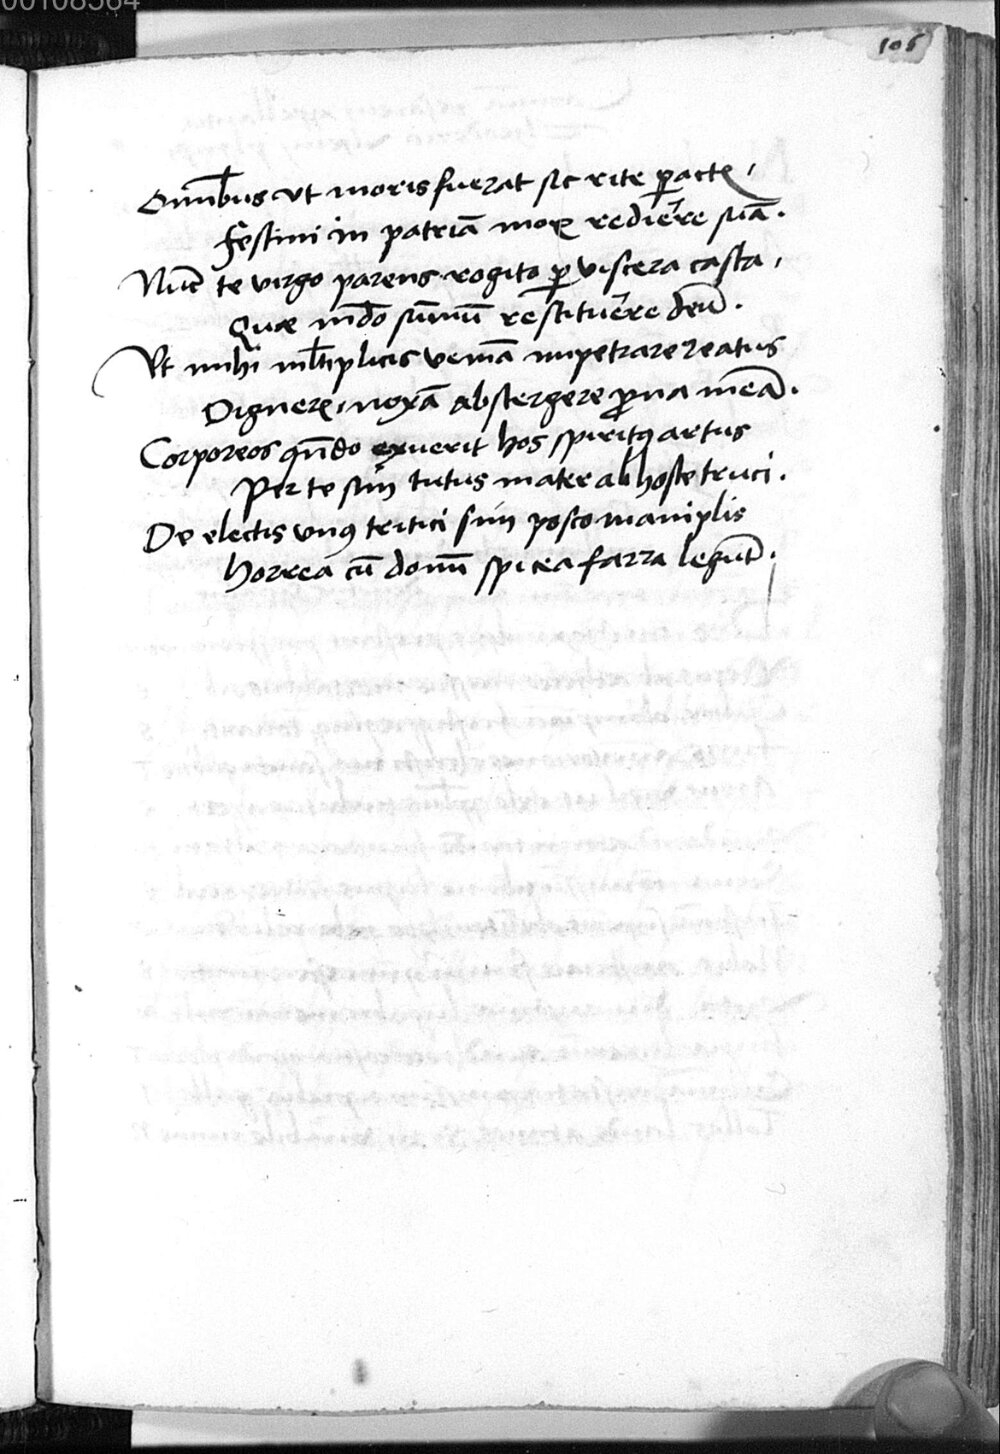 00108564
105
Omnibus vt moris fuerat sic rite peractꝭ,
Festini in patriā morꝭ rediēre suā.
Nūc te virgo parens rogito ꝑ viscera casta,
Quae mūdo sūmū restituēre deū.
Vt mihi mltiplicis veniā impetrare reatus
Dignerꝭ, noxā abstergere prona meā.
Corporeos qn̄do exuerit hos spiritꝰ artus
Per te sim tutus mater ab hoste truci.
De electis vnꝰ tritici sim posco maniplis
Horrea cū domū spicea farra legūt.